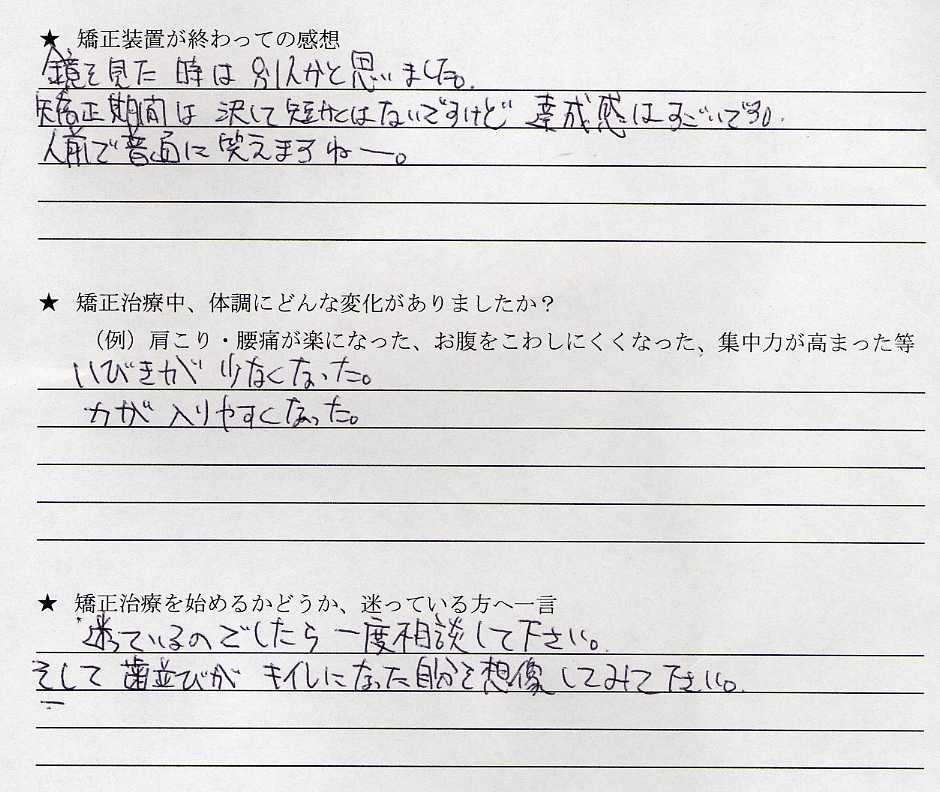 ★ 矯正装置が終わっての感想
鏡を見た時は別人かと思いました。
矯正期間は決して短かくはないですけど達成感はすごいです。
人前で普通に笑えますねー。
★ 矯正治療中、体調にどんな変化がありましたか？
（例）肩こり・腰痛が楽になった、お腹をこわしにくくなった、集中力が高まった等
いびきが少なくなった。
力が入りやすくなった。
★ 矯正治療を始めるかどうか、迷っている方へ一言
迷っているのでしたら一度相談して下さい。
そして歯並びがキイレになった自分を想像してみて下さい。